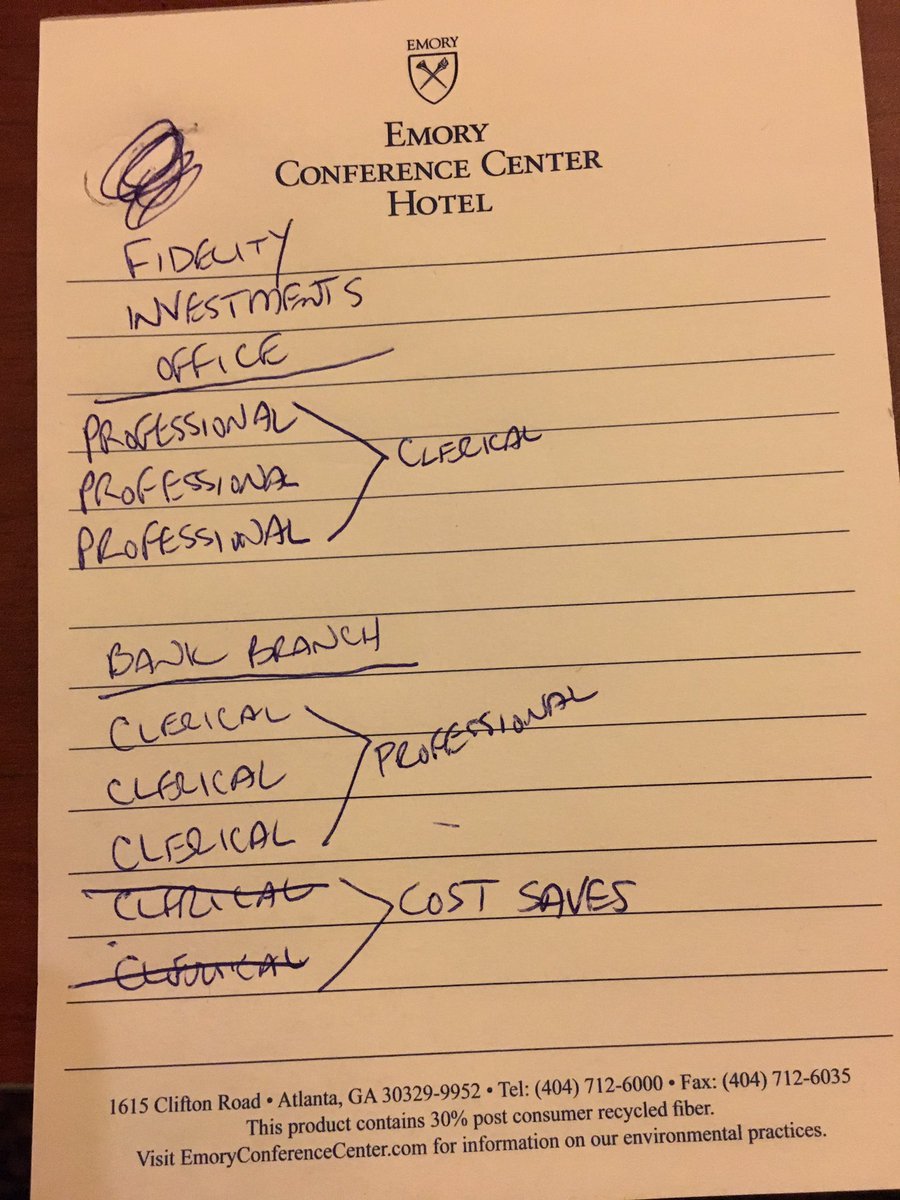 EMORY
EMORY
CONFERENCE CENTER
HOTEL
FIDELITY
INVESTMENTS
OFFICE
PROFESSIONAL
PROFESSIONAL
PROFESSIONAL
CLERICAL
BANK BRANCH
CLERICAL
CLERICAL
CLERICAL
PROFESSIONAL
CLERICAL
CLERICAL
COST SAVES
1615 Clifton Road • Atlanta, GA 30329-9952 • Tel: (404) 712-6000 • Fax: (404) 712-6035
This product contains 30% post consumer recycled fiber.
Visit EmoryConferenceCenter.com for information on our environmental practices.